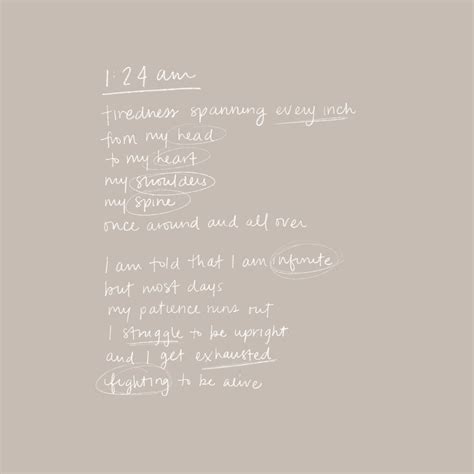 1:24 am
tiredness spanning every inch
from my head
to my heart
my shoulders
my spine
once around and all over
I am told that I am infinite
but most days
my patience runs out
I struggle to be upright
and I get exhausted
fighting to be alive